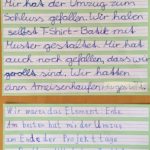 Mir hat der Umzug zum
Schluss gefallen. Wir haben
selbst T-Shirt-Batik mit
Muster gestaltet. Mir hat
auch noch gefallen, dass wir
gerolls sind. Wir hatten
einen Ameisenhaufen
Wir waren das Element: Erde
Am besten hat mir der Umzug
am Ende der Projekttage